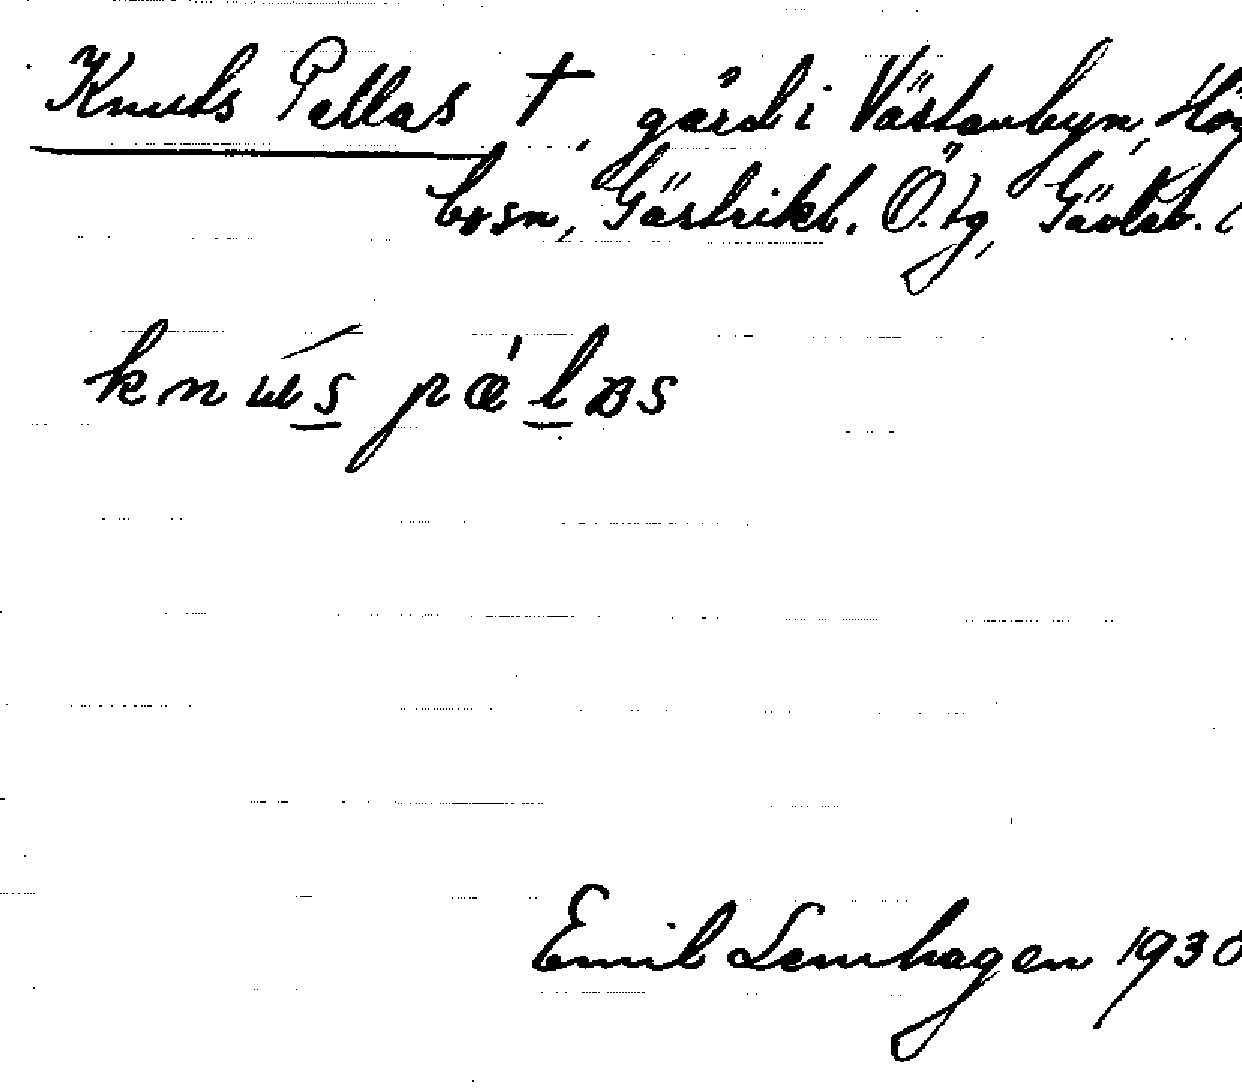 Knuts Pellas †, gård i Västanbyn, Hög
bo sn, Gästrikl. Ö. tg, Gävleb. l
knu̍s pæ̍las
Emil Lenhagen 1930